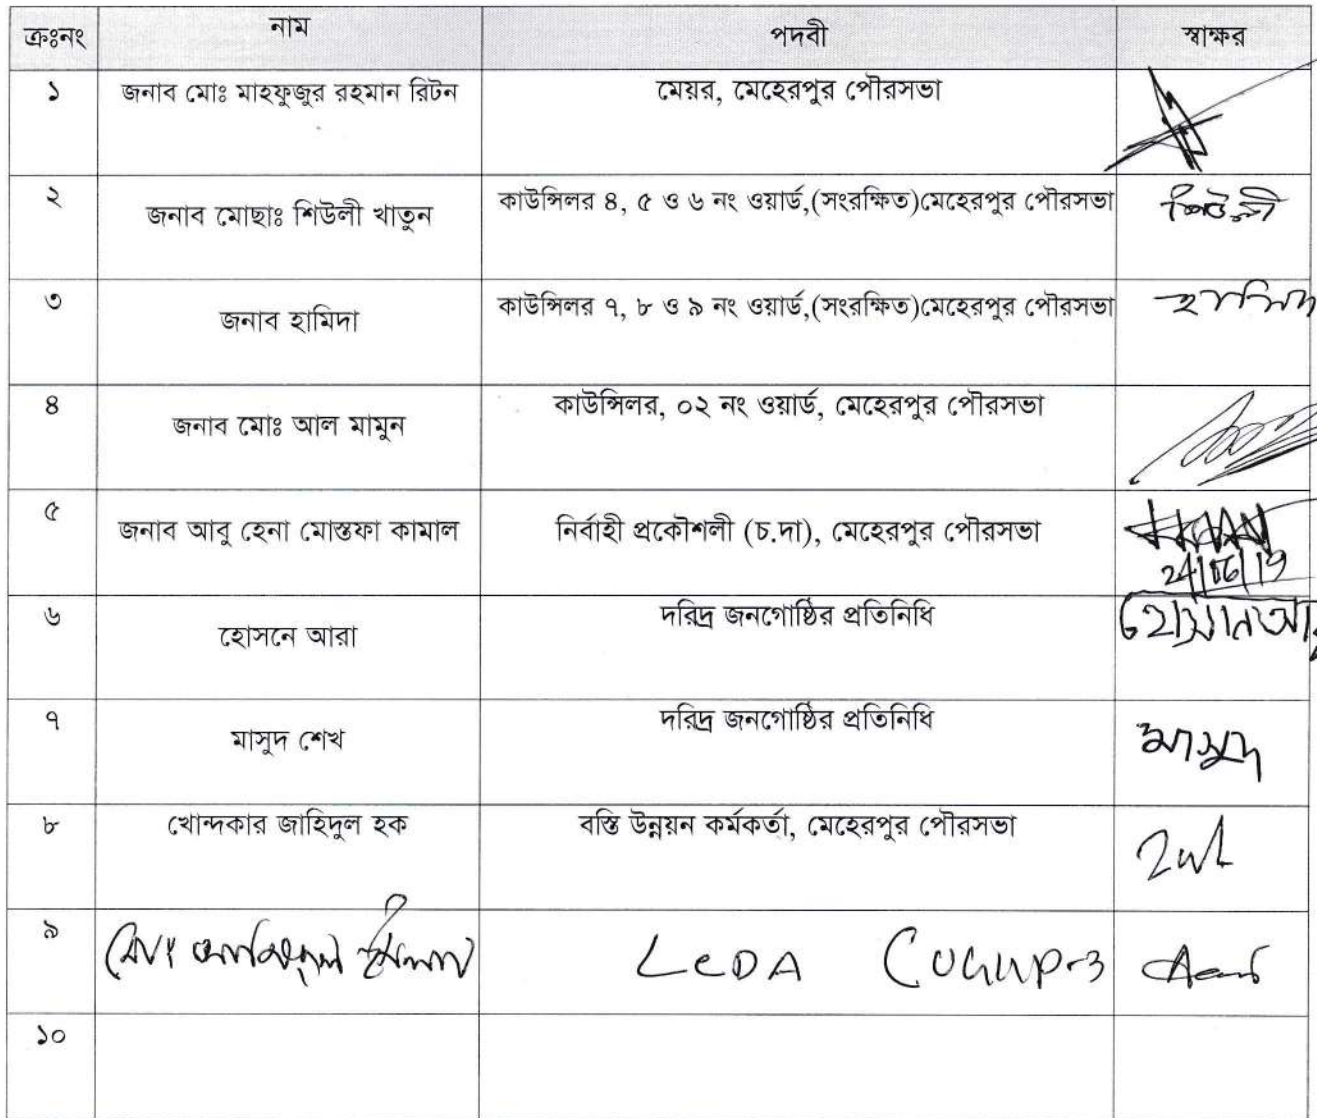 ক্রঃনং নাম পদবী স্বাক্ষর
১ জনাব মোঃ মাহফুজুর রহমান রিটন মেয়র, মেহেরপুর পৌরসভা
২ জনাব মোছাঃ শিউলী খাতুন কাউন্সিলর ৪, ৫ ও ৬ নং ওয়ার্ড,(সংরক্ষিত)মেহেরপুর পৌরসভা শিউলী
৩ জনাব হামিদা কাউন্সিলর ৭, ৮ ও ৯ নং ওয়ার্ড,(সংরক্ষিত)মেহেরপুর পৌরসভা হামিদা
৪ জনাব মোঃ আল মামুন কাউন্সিলর, ০২ নং ওয়ার্ড, মেহেরপুর পৌরসভা
৫ জনাব আবু হেনা মোস্তফা কামাল নির্বাহী প্রকৌশলী (চ.দা), মেহেরপুর পৌরসভা
24/06/19
৬ হোসনে আরা দরিদ্র জনগোষ্ঠির প্রতিনিধি
৭ মাসুদ শেখ দরিদ্র জনগোষ্ঠির প্রতিনিধি মাসুদ
৮ খোন্দকার জাহিদুল হক বস্তি উন্নয়ন কর্মকর্তা, মেহেরপুর পৌরসভা
৯ মোঃ LCDA
১০